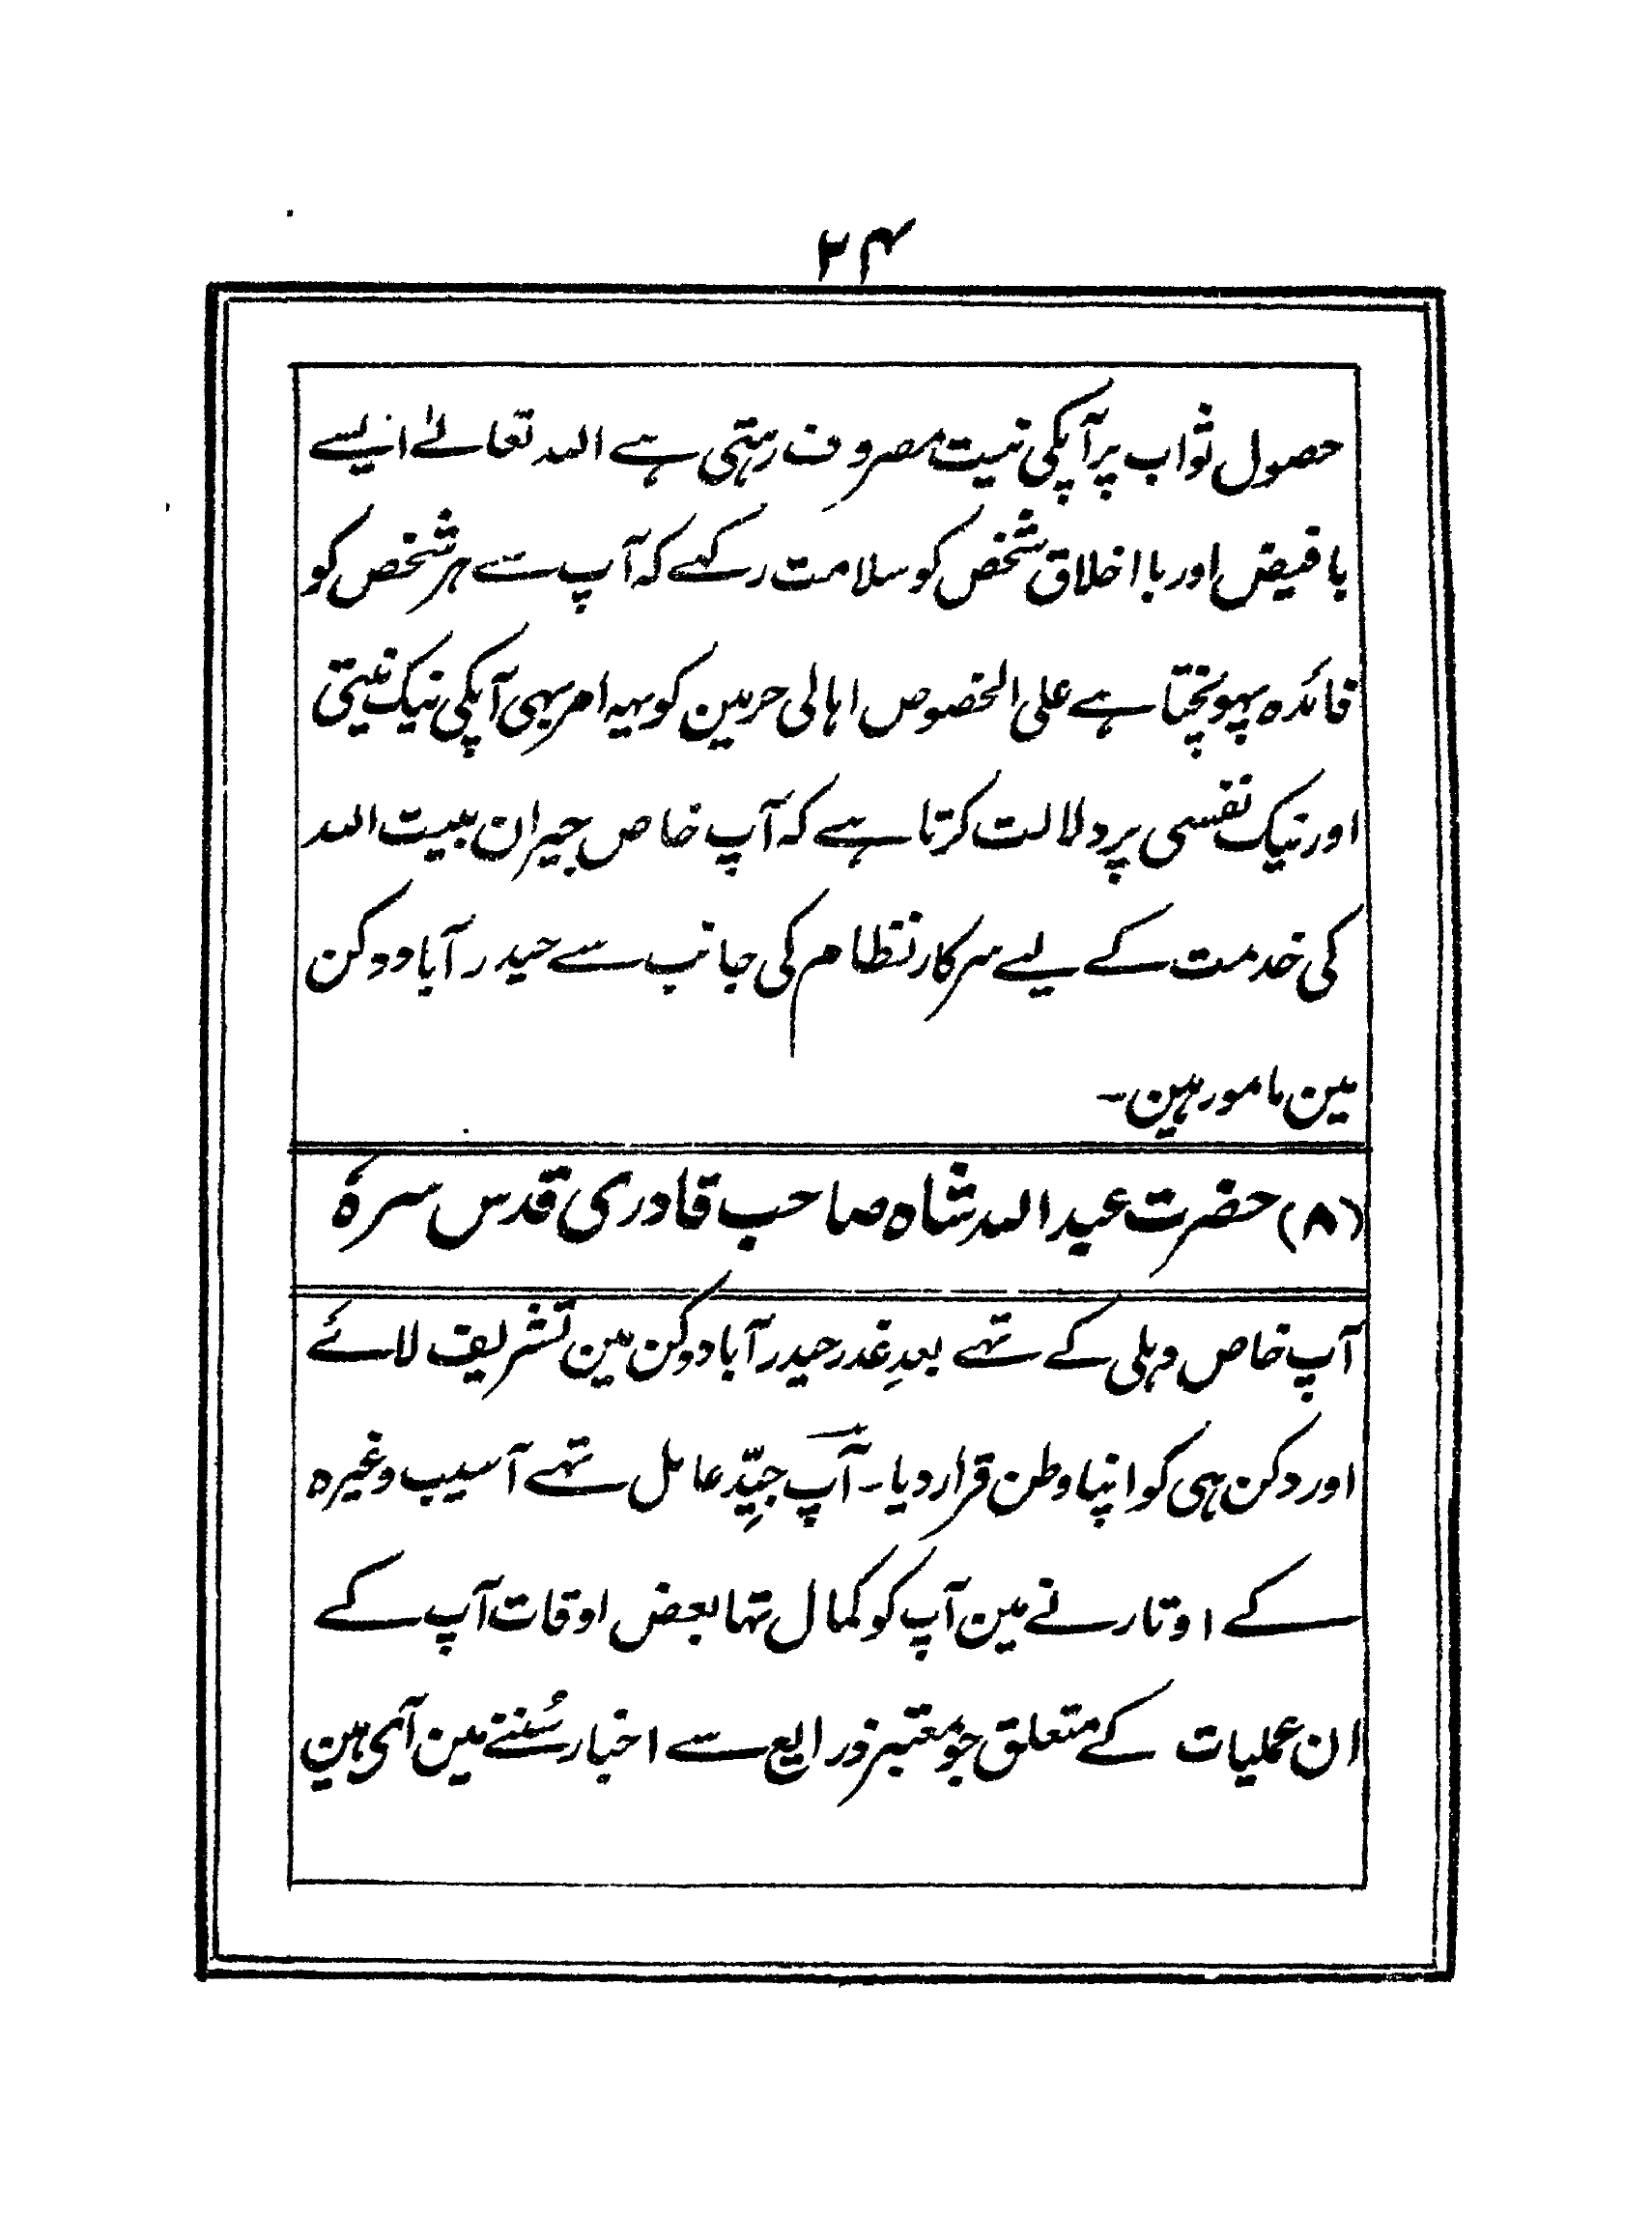 ۲۴
حصول ثواب پر آپکی نیت مصروف رہتی ہے اللہ تعالےٰ ایسے
بافیض اور بااخلاق شخص کو سلامت رکہے کہ آپ سے ہر شخص کو
فائدہ پہونچتا ہے علی الخصوص اہالی حرمین کو یہہ امر بہی آپکی نیک نیتی
اور نیک نفسی پر دلالت کرتا ہے کہ آپ خاص جیران بیت اللہ
کی خدمت کے لیے سرکار نظام کی جانب سے حیدرآباد دکن
مین مامور ہین۔
(۸) حضرت عبداللہ شاہ صاحب قادری قدس سرہٗ
آپ خاص دہلی کے تہے بعدِ غدر حیدرآباد دکن مین تشریف لائے
اور دکن ہی کو اپنا وطن قرار دیا۔ آپ جیِّد عامل تہے آسیب وغیرہ
کے اوتارنے مین آپ کو کمال تہا بعض اوقات آپ کے
ان عملیات کے متعلق جو معتبر ذرایع سے اخبار سُننے مین آئی ہین